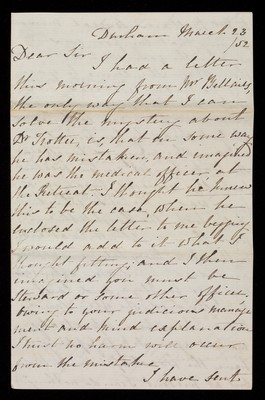 Durham March 23
/52
Dear Sir
I had a letter
this morning from Mr Bellairs,
the only way that I can
solve the mystery about
Dr Trotter, is, that in some way
he was mistaken, and imagined
he was the medical officer, at
the Retreat. I thought he knew
this to be the case, when he
enclosed the letter to me begging
I would add to it what I
thought fitting, and I then
imagined you must be
Steward or some other officer,
owing to your judicious manage
ment and kind explanation
I trust no harm will occur
from the mistake.
I have sent